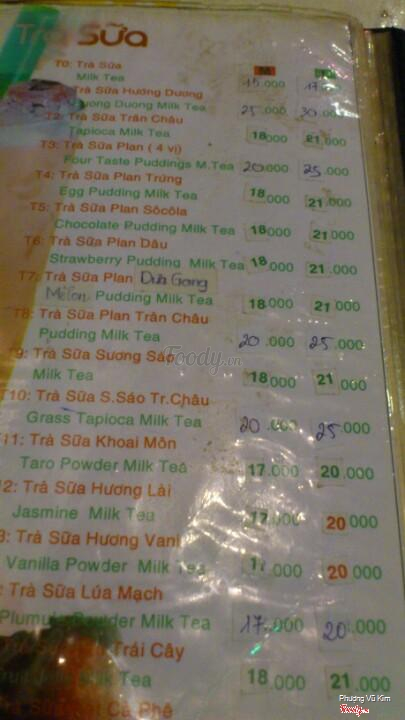 Trà Sữa
T0: Trà Sữa
Milk Tea
M
15.000
Trà Sữa Hướng Dương
Duong Milk Tea 25.000 30.000
T2: Trà Sữa Trân Châu
Tapioca Milk Tea 18000 21.000
T3: Trà Sữa Plan ( 4 vị)
Four Taste Puddings M.Tea 20000 25.000
T4: Trà Sữa Plan Trứng
Egg Pudding Milk Tea 18.000 21.000
T5: Trà Sữa Plan Sôcôla
Chocolate Pudding Milk Tea 18.000 21.000
T6: Trà Sữa Plan Dâu
Strawberry Pudding Milk Tea 18.000 21.000
T7: Trà Sữa Plan Dưa Gang
Melon Pudding Milk Tea 18.000 21.000
T8: Trà Sữa Plan Trân Châu
Pudding Milk Tea 20.000 25.000
T9: Trà Sữa Sương Sáo
Foody.vn
Milk Tea 18000 21.000
T10: Trà Sữa S.Sáo Tr.Châu
Grass Tapioca Milk Tea 20.000 25.000
11: Trà Sữa Khoai Môn
Taro Powder Milk Tea 17.000 20.000
12: Trà Sữa Hương Lài
Jasmine Milk Tea 17.000 20.000
3: Trà Sữa Hương Vani
Vanilla Powder Milk Tea 17.000 20.000
: Trà Sữa Lúa Mạch
Powder Milk Tea 17.000 20.000
Trái Cây
Milk Tea 18.000 21.000
Cà Phê
Phương Vũ Kim
Foody.vn